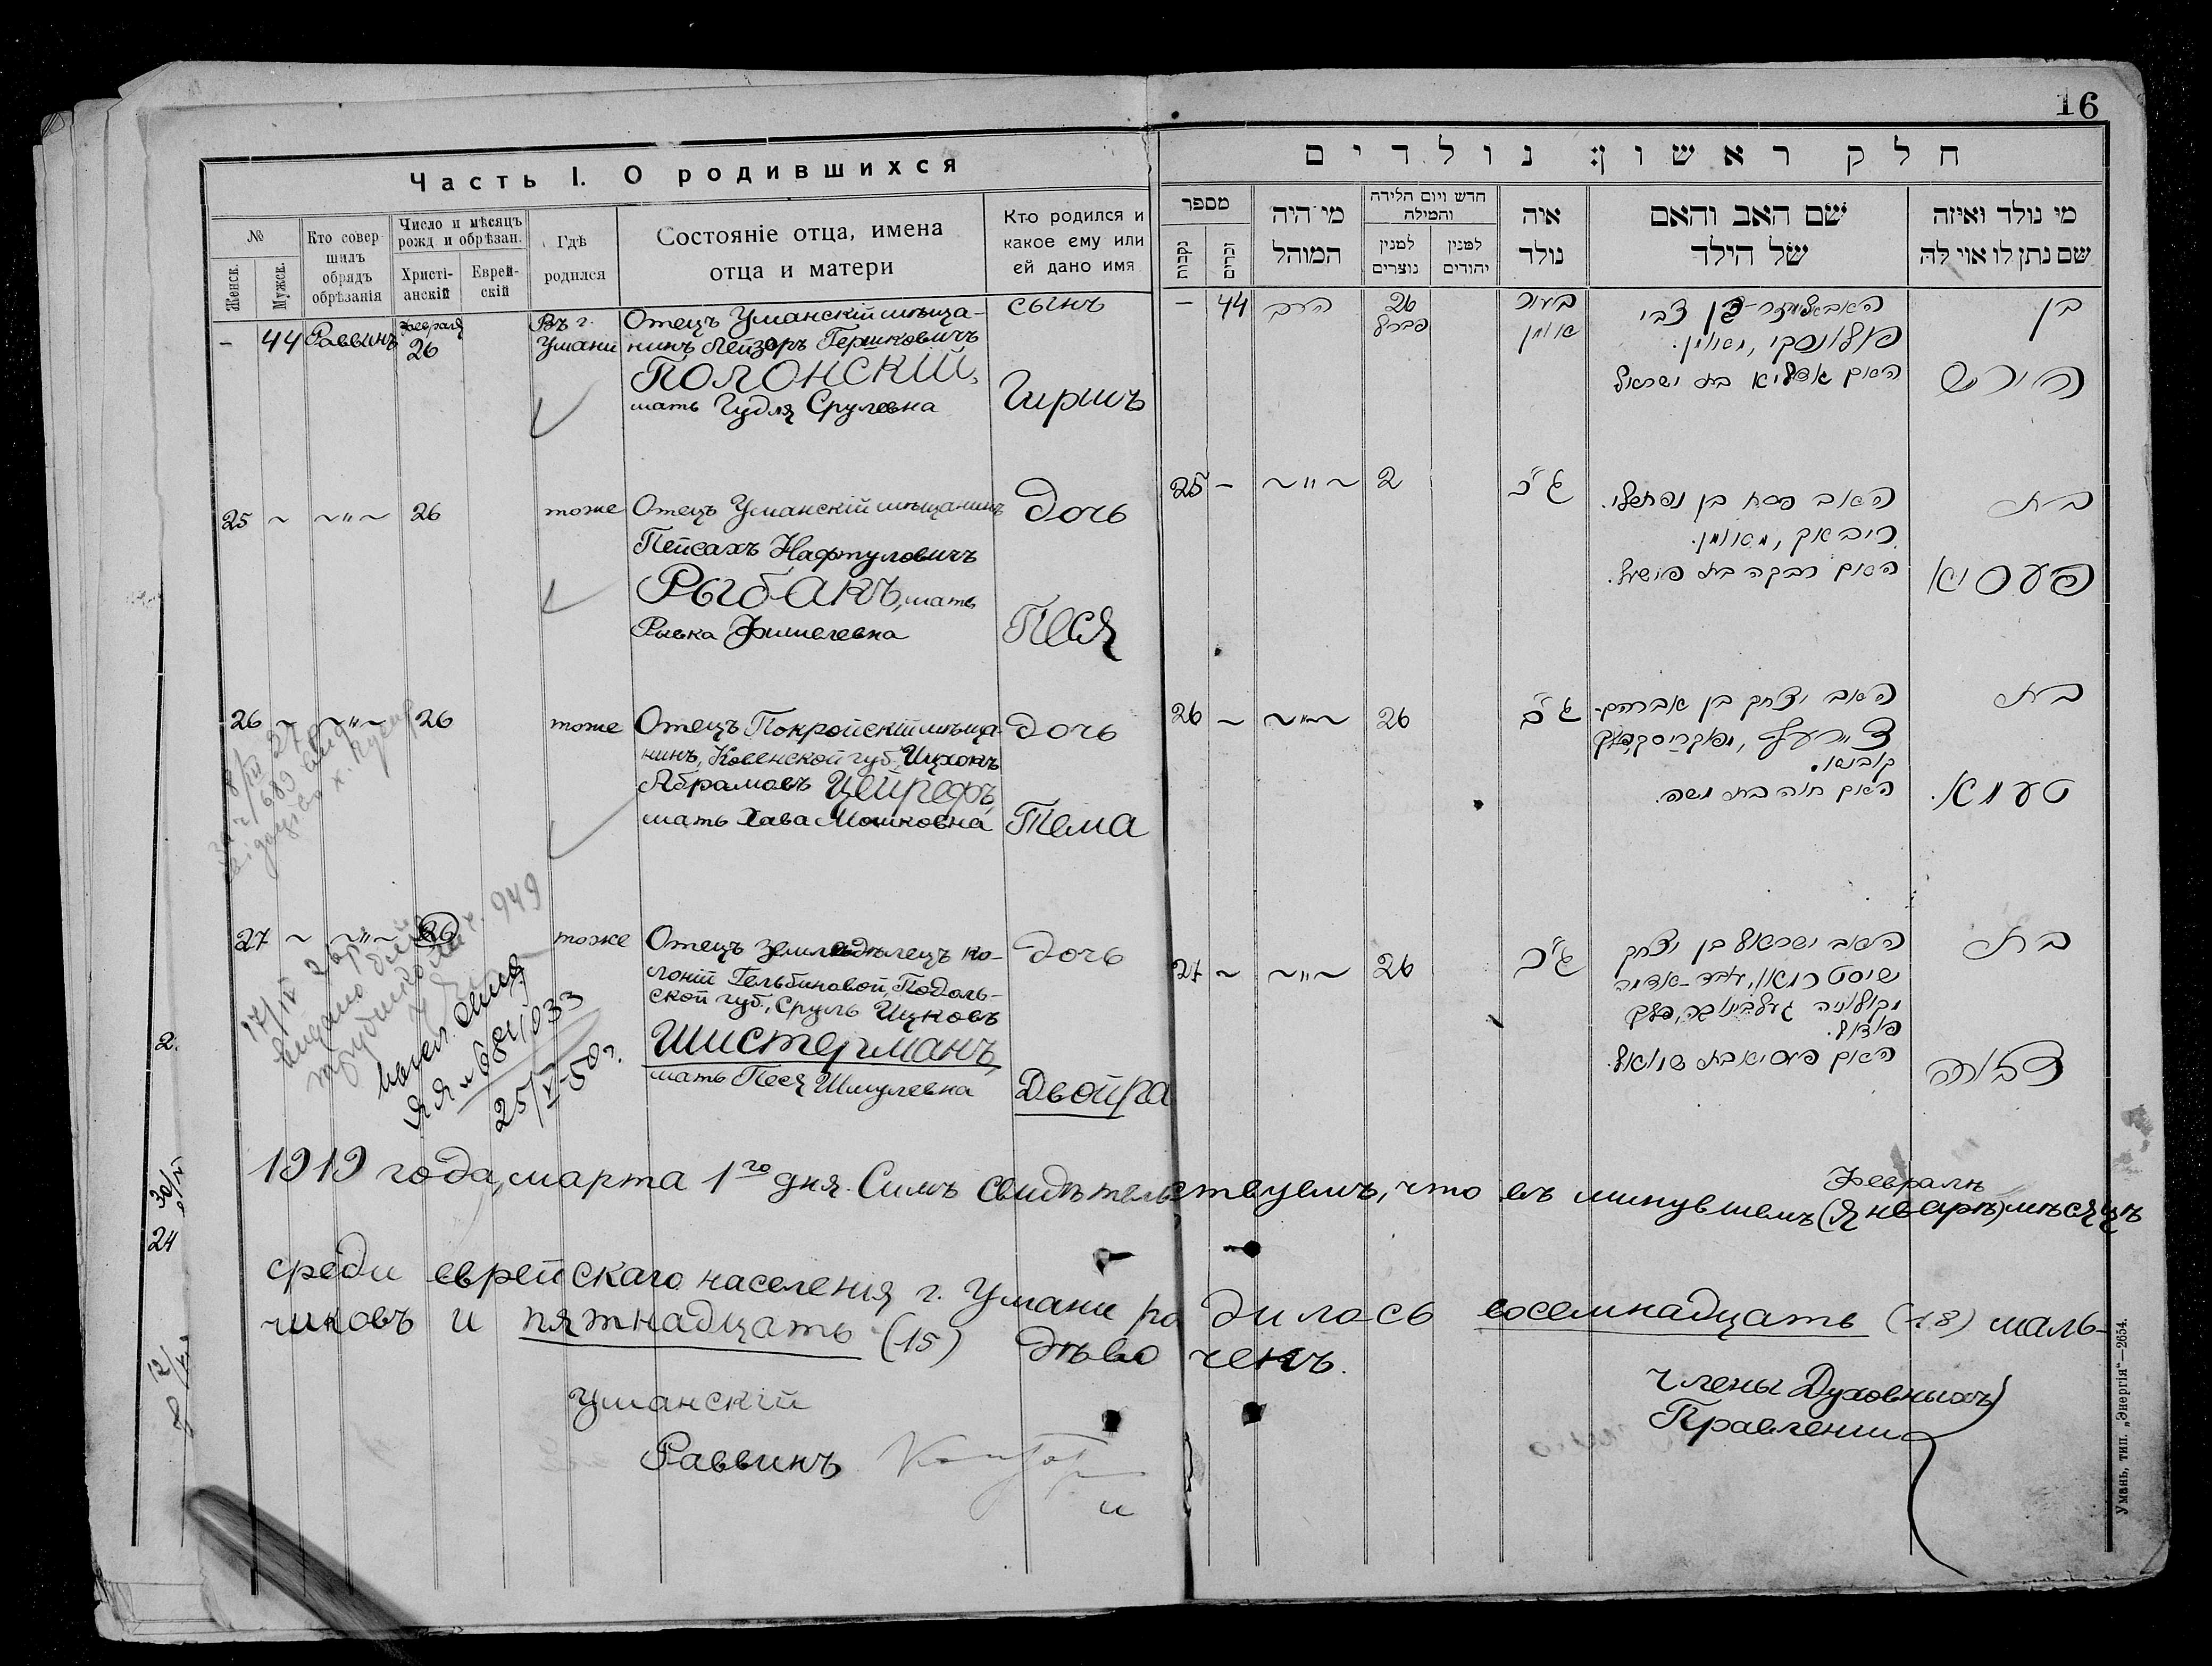 16
Часть I. О родившихся
№
Женск.
Мужск.
Кто совершилъ обрядъ обрѣзанія
Число и мѣсяцъ рожд и обрѣзан.
Христіанскій
Еврейскій
Гдѣ родился
Состояніе отца, имена отца и матери
Кто родился и какое ему или ей дано имя
– 44 Раввинъ февраля 26
Въ г. Умани
Отецъ Уманскій мѣща-
нинъ Лейзоръ Гершковичъ
Полонскій,
мать Гудля Срулевна
сынъ
Гиршъ
25 ~ ~"~ 26 тоже
Отецъ Уманскій мѣщанинъ
Пейсахъ Нафтуловичъ
Рыбакъ, мать
Рывка Фишелевна
Дочь
Песя
26 ~ ~"~ 26 тоже
Отецъ Покройскій мѣща-
нинъ, Ковенской губ. Ицхокъ
Абрамовъ Цейрефъ,
мать Хава Мошковна
дочь
Тема
27 ~ ~"~ 26 тоже
Отецъ земледѣлецъ ко-
лоніи Гельбиновой, Подоль-
ской губ., Сруль Ицковъ
Шистерманъ,
мать Песя Шмулевна
дочь
Двойра
949
25/VI-50 г.
חלק ראשון: נולדים
מספר
נקבה
זכרים
מי היה המוהל
חדש ויום הלידה והמילה
למנין נוצרים
למנין יהודים
איה נולד
שם האב והאם של הילד
מי נולד ואיזה שם נתן לו או לה
– 44 הרב 26
בעיר
אומאן
האב אליעזר בן צבי
פולונסקי, מאומן.
בן
הירש
25 – ~"~ 2 ג״כ
האב פסח בן נפתלי.
ריבאק, מאומן.
האם רבקה בת פישל.
בת
פעסיא
26 ~ ~"~ 26 ג״כ
האב יצחק בן אברהם
האם חוה בת משה.
בת
טעמא.
27 ~ ~"~ 26 ג״כ
האב ישראל בן יצחק
האם פעסיא בת שמואל.
בת
דבורה
1919 года, марта 1го дня. Симъ свидѣтельствуемъ, что въ минувшемъ (Январѣ) Февралѣ мѣсяцѣ
среди еврейскаго населенія г. Умани родилось восемнадцать (18) маль-
чиковъ и пятнадцать (15) дѣвочекъ.
Уманскій
Раввинъ
Члены Духовныхъ
Правленій
Умань, тип. „Энергія“—2654.
2.
24